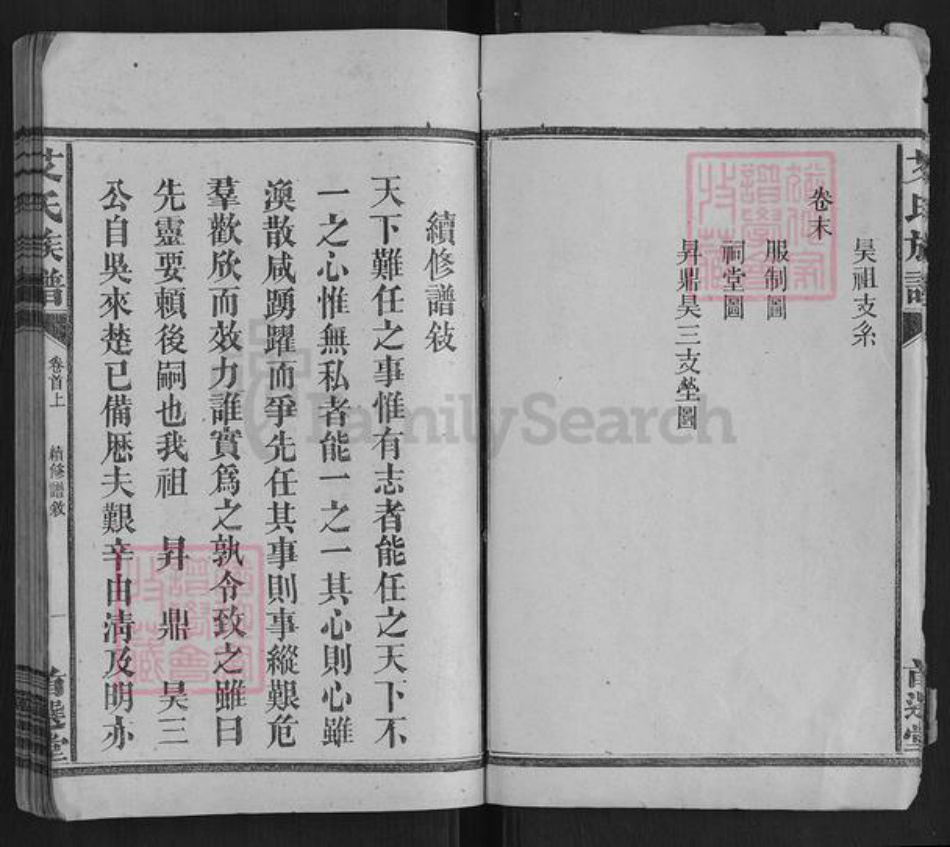 昊祖支糸
卷末
服制圖
祠堂圖
昇鼎昊三支塋圖
續修譜敍
天下難任之事惟有志者能任之天下不
一之心惟無私者能一之一其心則心雖
渙散咸踴躍而爭先任其事則事縱艱危
羣歡欣而效力誰實爲之孰令致之雖曰
先靈要賴後嗣也我祖 昇 鼎 昊三
公自吳來楚已備歷夫艱辛由淸及明亦
艾氏族譜
卷首上
續修譜敘
一
首選堂
FamilySearch